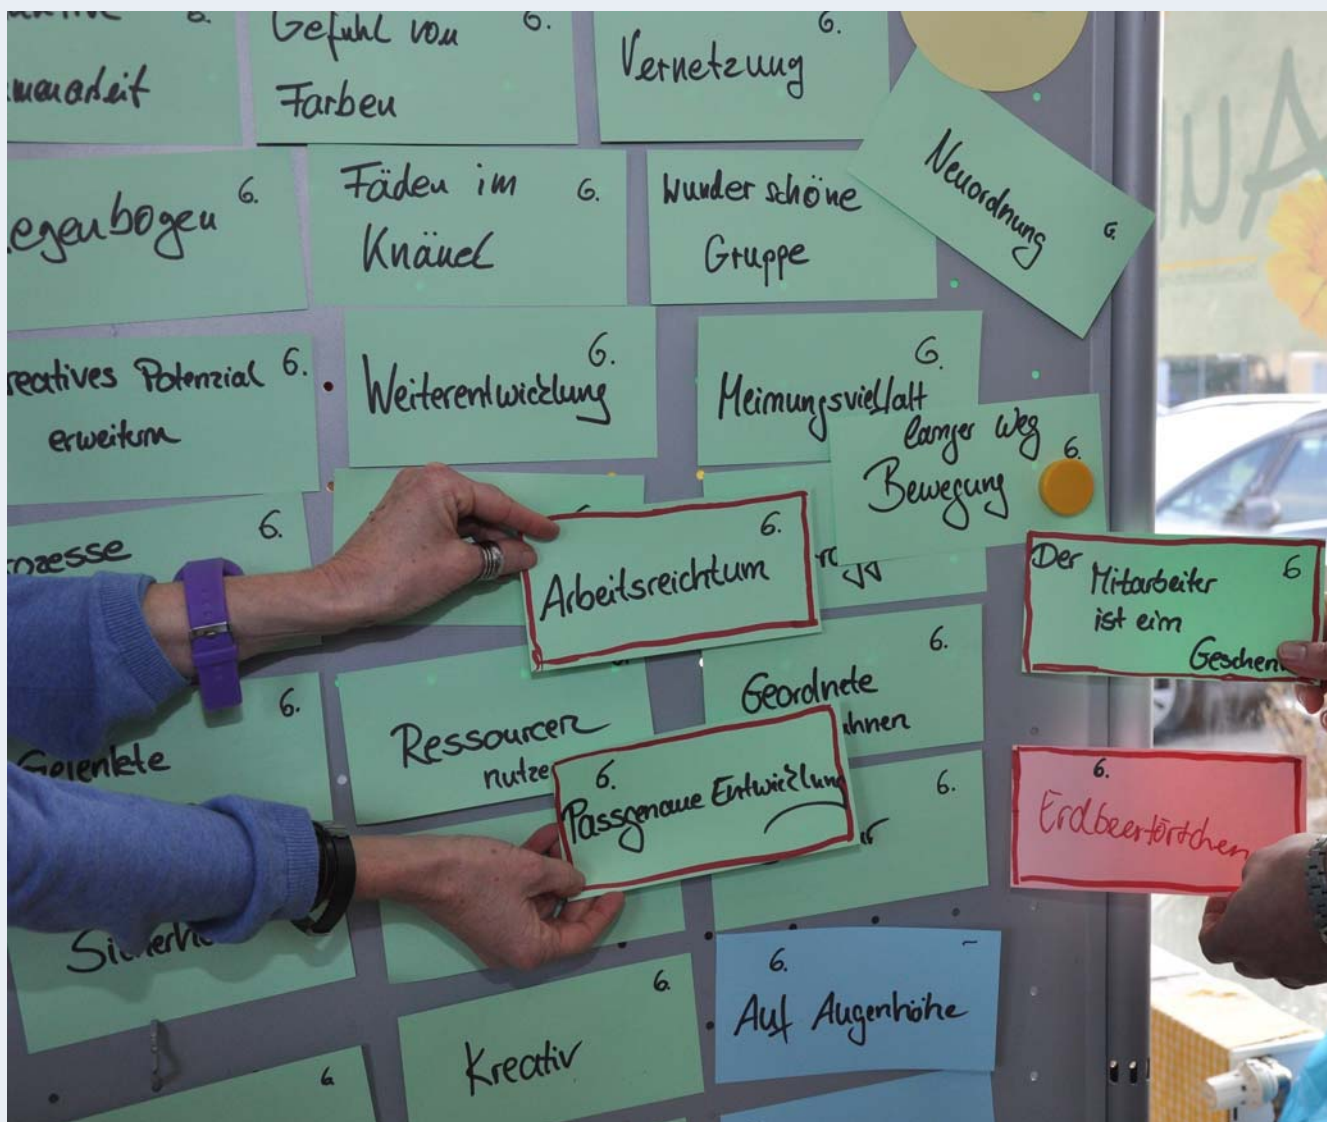 6.
Gefühl von
Farben
6.
Vernetzung
6.
Neuordnung
6.
6.
Fäden im
Knäuel
6.
Wunderschöne
Gruppe
Potenzial
erweitern
6.
Weiterentwicklung
6.
Meinungsvielfalt
6.
langer Weg
Bewegung
6.
6.
Arbeitsreichtum
6.
Der Mitarbeiter
ist ein
6
6.
Ressourcen
Geordnete
6.
Passgenaue Entwicklung
6.
6.
Erdbeertörtchen
6.
Kreativ
6.
Auf Augenhöhe
6.
6